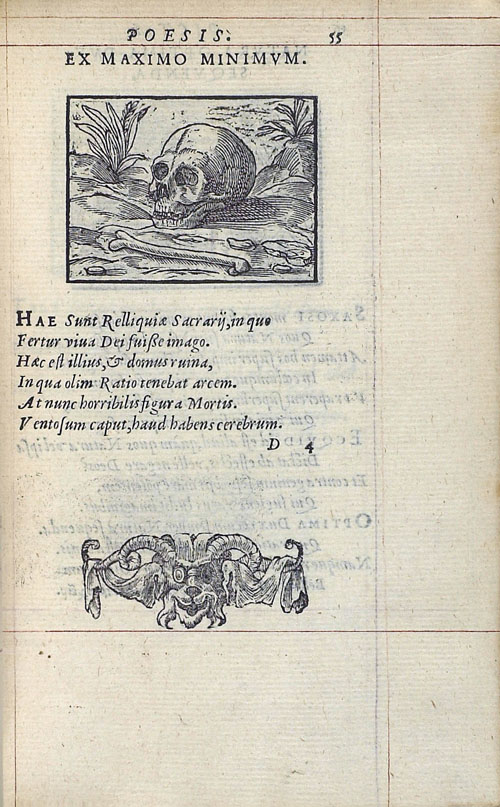 POESIS. 55
EX MAXIMO MINIMVM.
HAE Sunt Relliquiæ Sacrarij, in quo
Fertur viua Dei fuiſſe imago.
Hæc eſt illius, & domus ruina,
In qua olim Ratio tenebat arcem.
At nunc horribilis figura Mortis.
Ventoſum caput, haud habens cerebrum.
D 4